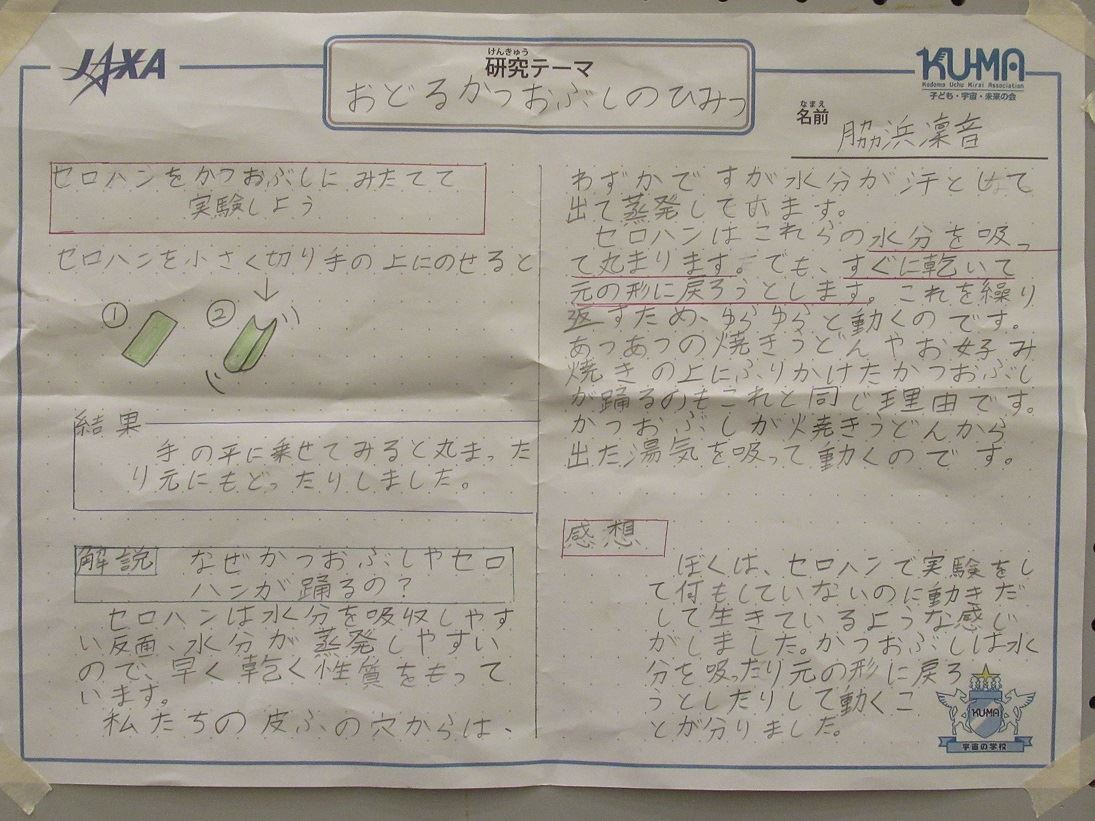 JAXA
けんきゅう
研究テーマ
おどるかつおぶしのひみつ
KU-MA
Kodomo Uchu Mirai Association
子ども・宇宙・未来の会
なまえ
名前
脇浜凜音
セロハンをかつおぶしにみたてて
実験しよう
セロハンを小さく切り手の上にのせると
① ②
結果
手の平に乗せてみると丸まった
り元にもどったりしました。
解説 なぜかつおぶしやセロ
ハンが踊るの?
セロハンは水分を吸収しやす
い反面、水分が蒸発しやすい
ので、早く乾く性質をもって
います。
私たちの皮ふの穴からは、
わずかですが水分が汗として
出て蒸発しています。
セロハンはこれらの水分を吸っ
て丸まります。でも、すぐに乾いて
元の形に戻ろうとします。これを繰り
返すため、ゆらゆらと動くのです。
あつあつの焼きうどんやお好み
焼きの上にふりかけたかつおぶし
が踊るのもこれと同じ理由です。
かつおぶしが焼きうどんから
出た湯気を吸って動くのです。
感想
ぼくは、セロハンで実験をし
て何もしていないのに動きだ
して生きているような感じ
がしました。かつおぶしは水
分を吸ったり元の形に戻ろ
うとしたりして動くこ
とが分りました。
KU-MA
宇宙の学校